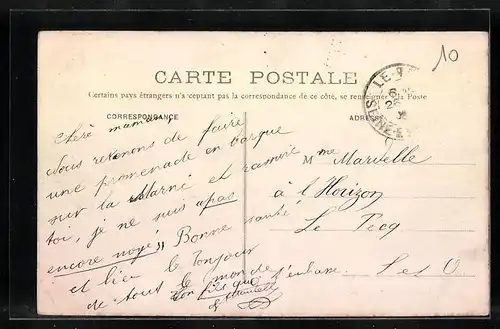 10
CARTE POSTALE
Certains pays étrangers n'acceptant pas la correspondance de ce côté, se renseigner à la Poste
CORRESPONDANCE
Chère maman,
Nous revenons de faire
une promenade en barque
sur la Marne et
toi, je ne suis pas
encore noyé". Bonne santé
et bien le bonjour
de tout le monde
Ton fils qui t'embrasse.
Mme Marvelle
à l'Horizon
Le Pecq